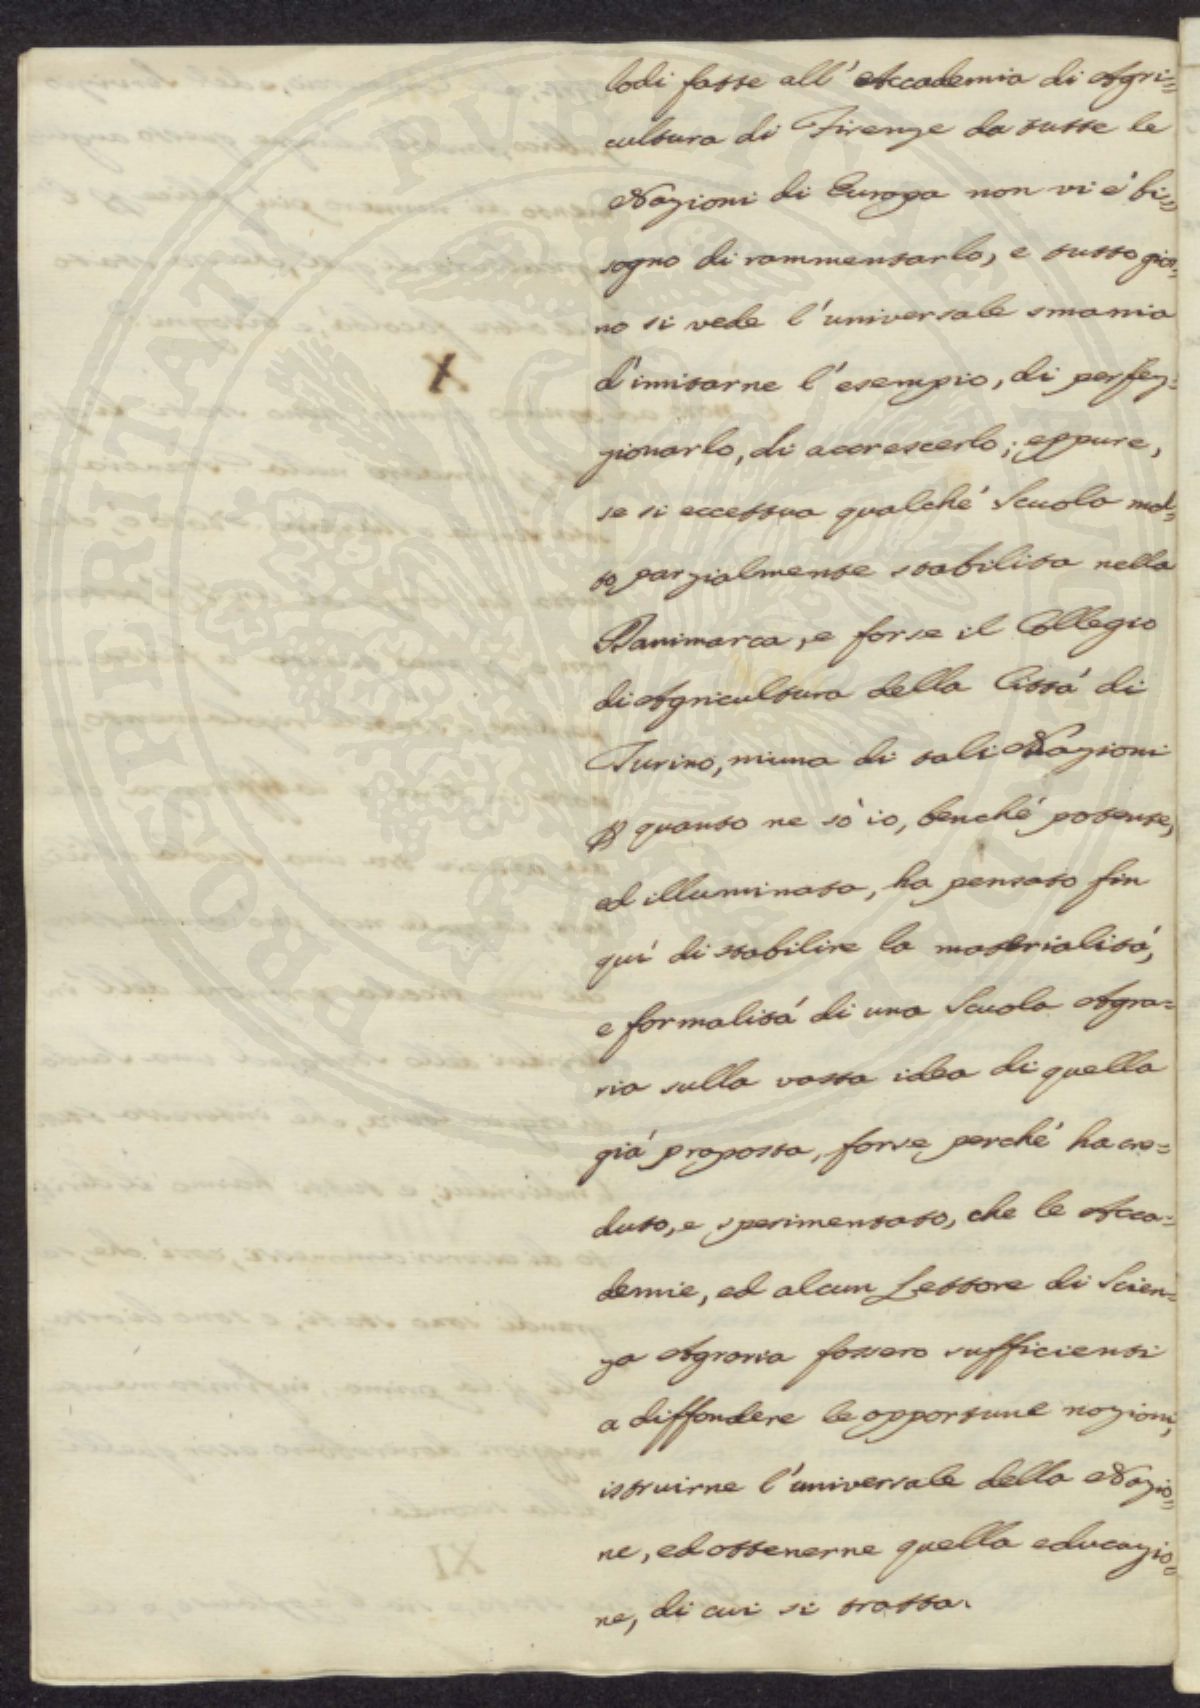 lodi fatte all'Accademia di Agri=
cultura di Firenze da tutte le
Nazioni di Europa non vi é bi=
sogno di rammentarlo, e tutto gior=
no si vede l'universale smania
d'imitarne l'esempio, di perfez=
zionarlo, di accrescerlo; eppure,
se si eccettua qualché Scuola mol=
to parzialmente stabilita nella
Danimarca, e forse il Collegio
di Agricultura della Cittá di
Turino, niuna di tali Nazioni
quanto ne só io, benché potente,
ed illuminata, ha pensato fin
quí di stabilire la materialitá,
e formalitá di una Scuola Agra=
ria sulla vasta idea di quella
giá proposta, forse perché ha cre=
duto, e sperimentato, che le Acca=
demie, ed alcun Lettore di Scien=
za Agraria fossero sufficienti
a diffondere le opportune nozioni,
istruirne l'universale della Nazio=
ne, ed ottenerne quella educazio=
ne, di cui si tratta.
PROSPERITATI PVBLICAE AVGENDAE